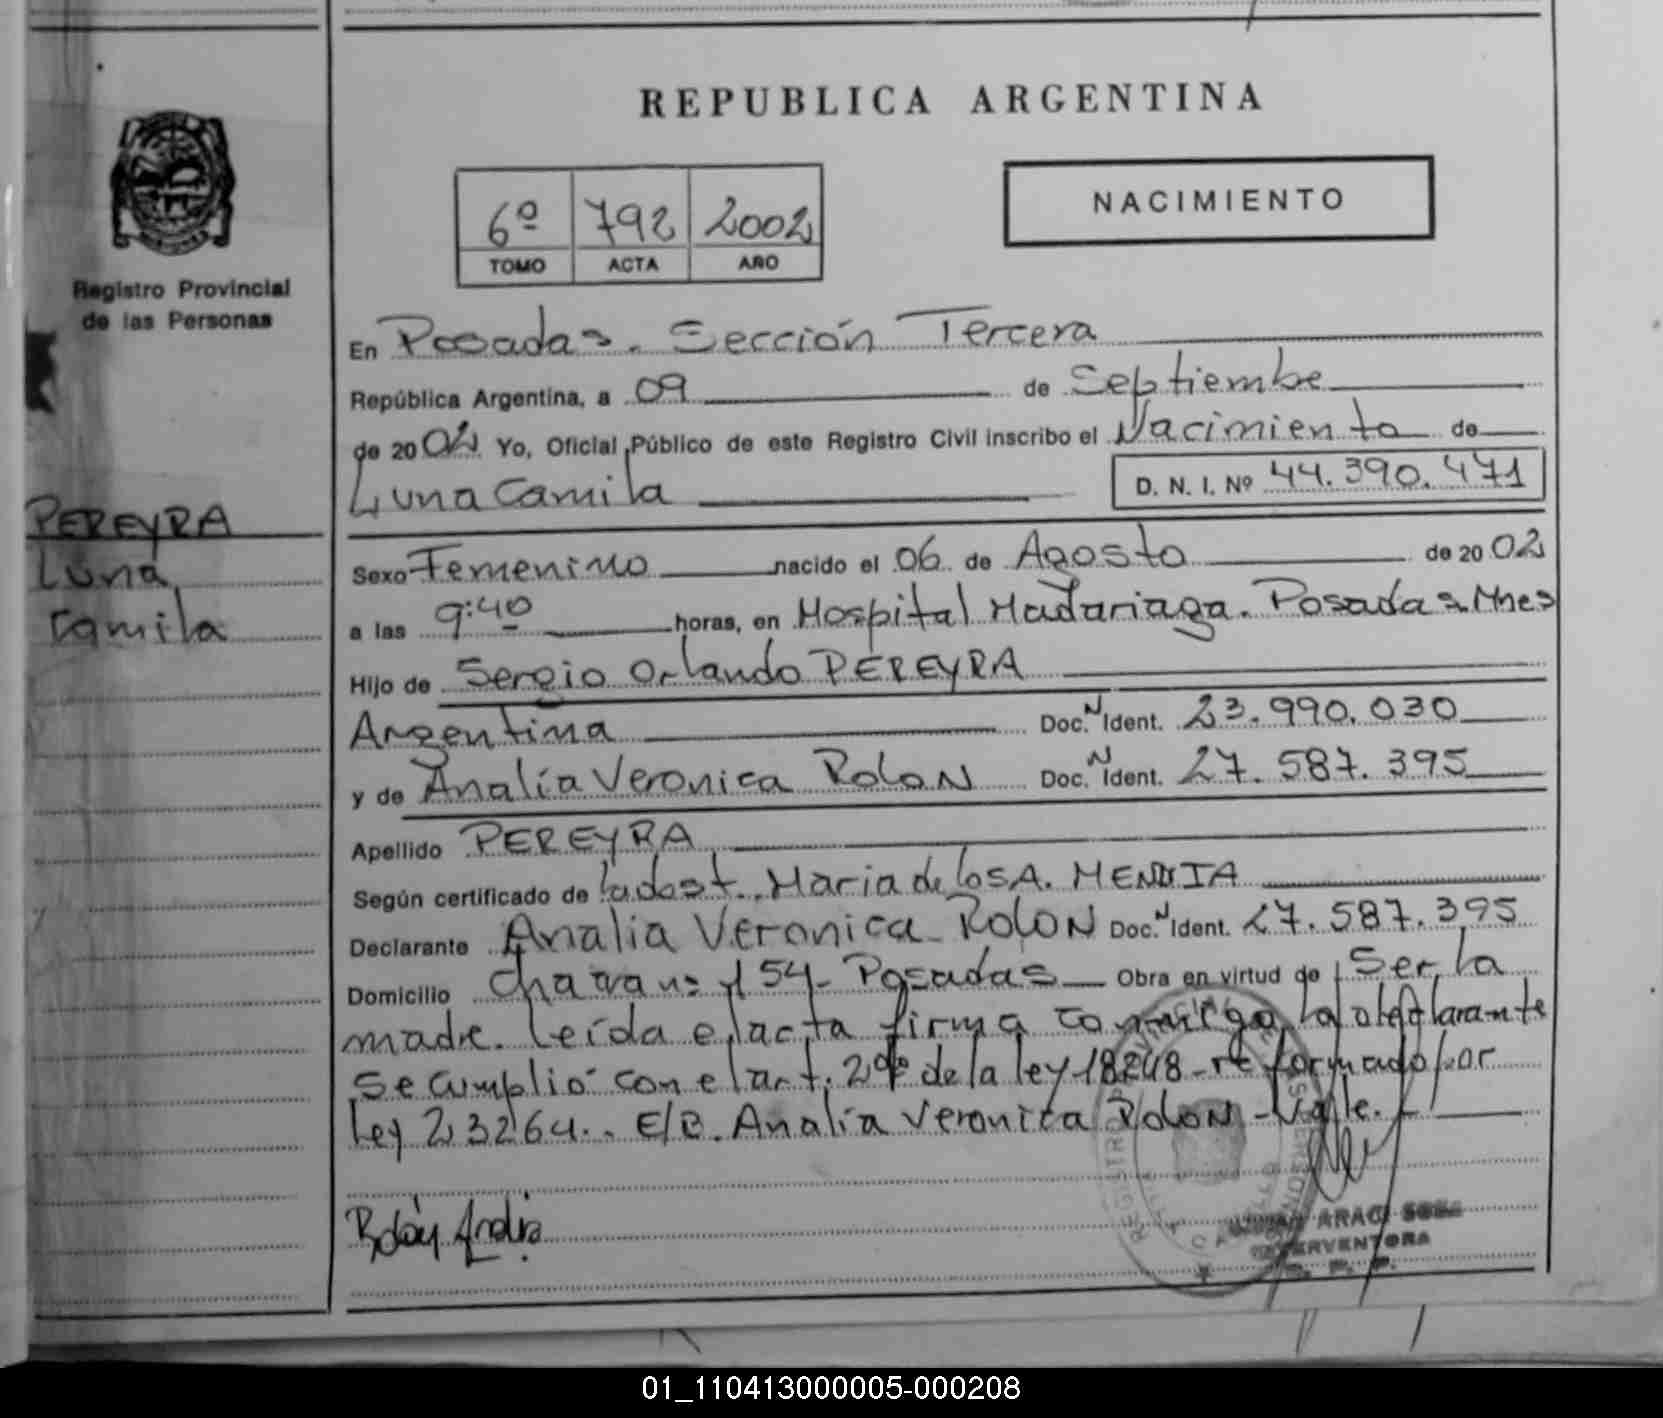 REPUBLICA ARGENTINA
6º 792 2002
TOMO ACTA AÑO
NACIMIENTO
Registro Provincial
de las Personas
PEREYRA
Luna
Camila
En Posadas. Sección Tercera
República Argentina, a 09 de Septiembre
de 2002 Yo, Oficial Público de este Registro Civil inscribo el Nacimiento de
Luna Camila D. N. I. Nº 44.390.471
Sexo Femenino nacido el 06 de Agosto de 2002
a las 9:40 horas, en Hospital Madariaga. Posadas Mnes
Hijo de Sergio Orlando PEREYRA
Argentina Doc. N Ident. 23.990.030
y de Analía Veronica Rolon Doc. N Ident. 27.587.395
Apellido PEREYRA
Según certificado de María de los A.
Declarante Analia Veronica Rolon Doc. N Ident. 27.587.395
Domicilio 154 - Posadas Obra en virtud de Ser la
madre. Leída el acta firma conmigo la declarante
se cumplió con el art. 2º de la ley 18248 - reformado por
Ley 23264. E/R. Analía Veronica Rolon - Vale.
Rolón Analia
ARACI SOSA
INTERVENTORA
R. P. P.
01_110413000005-000208